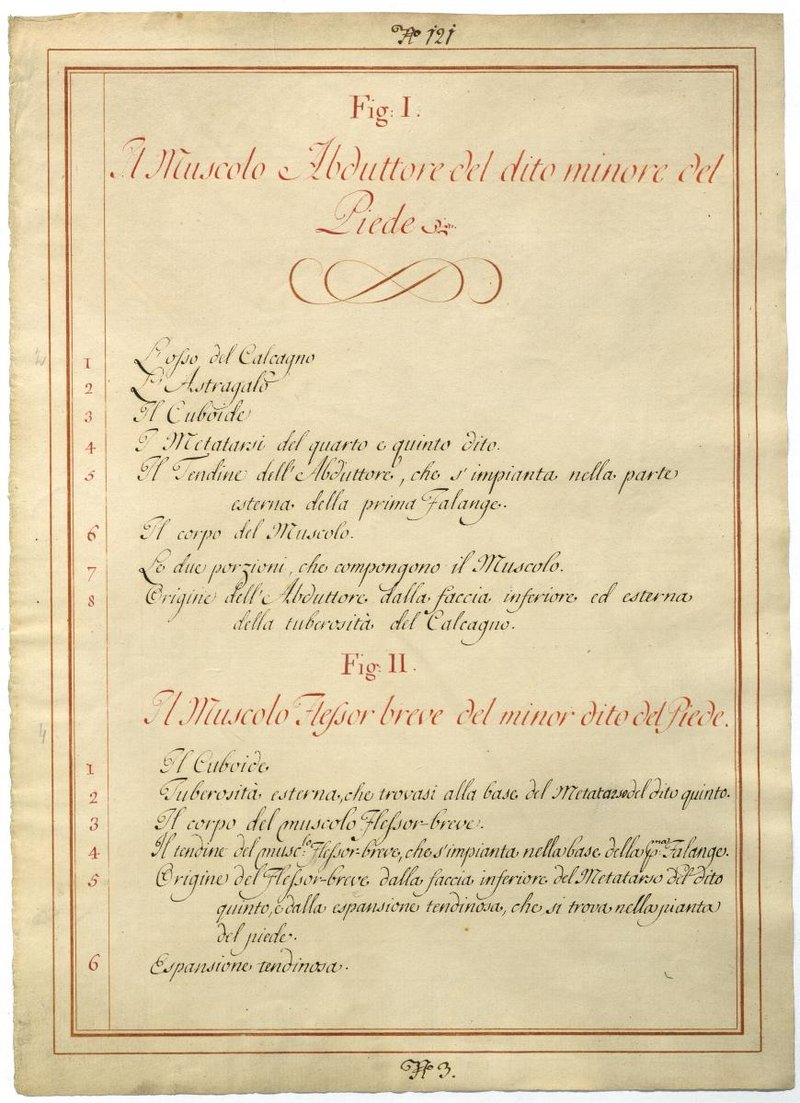 N.º 121
Fig: I.
Il Muscolo Abduttore del dito minore del
Piede
1 L'osso del Calcagno
2 L'Astragalo
3 Il Cuboide
4 I Metatarsi del quarto e quinto dito.
5 Il Tendine dell'Abduttore, che s'impianta nella parte
esterna della prima Falange.
6 Il corpo del Muscolo.
7 Le due porzioni, che compongono il Muscolo.
8 Origine dell'Abduttore dalla faccia inferiore ed esterna
della tuberosità del Calcagno.
Fig: II.
Il Muscolo Flessor breve del minor dito del Piede.
1 Il Cuboide
2 Tuberosità esterna, che trovasi alla base del Metatarso del dito quinto.
3 Il corpo del muscolo Flessor-breve.
4 Il tendine del musc:lo Flessor-breve, che s'impianta nella base della p:ma Falange.
5 Origine del Flessor-breve dalla faccia inferiore del Metatarso del dito
quinto, e dalla espansione tendinosa, che si trova nella pianta
del piede.
6 Espansione tendinosa.
N.º 3.